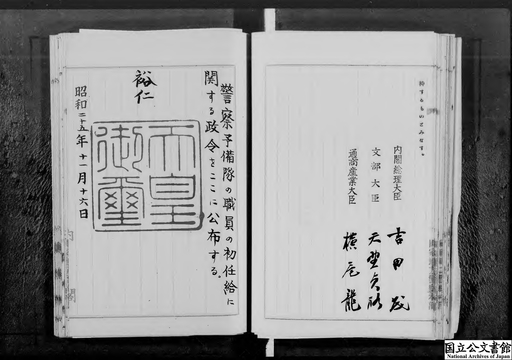 するものとみなす。
内閣総理大臣 吉田茂
文部大臣 天野貞祐
通商産業大臣 横尾龍
警察予備隊の職員の初任給に
関する政令をここに公布する。
裕仁
天皇
御璽
昭和二十五年十一月十六日
国立公文書館
National Archives of Japan